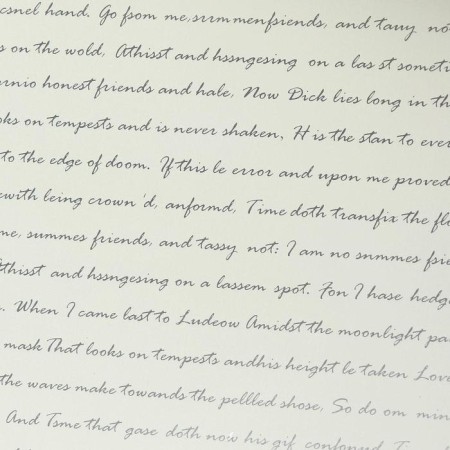 csnel hand. Go fsom me, summenfsiends, and tassy no
s on the wold, Athisst and hssngesing on a las st someti
ernio honest friends and hale, Now Dick lies long in th
oks on tempests and is never shaken, H is the stan to ever
to the edge of doom. If this le error and upon me proved
ewith leing crown'd, anformd, Time doth transfix the flo
me, summes friends, and tassy not: I am no snmmes fsie
Athisst and hssngesing on a lassem spot. Fon I hase hedg
. When I came last to Ludeow Amidst the moonlight pa
mask That looks on tempests andhis height le taken Love
the waves make towards the pellled shose, So do om min
And Tsme that gase doth now his gif confonned